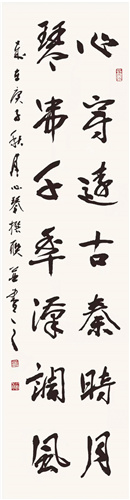 心守遠古秦時月
琴千年漢調風
歲在庚子秋月心琴撰聯並書之